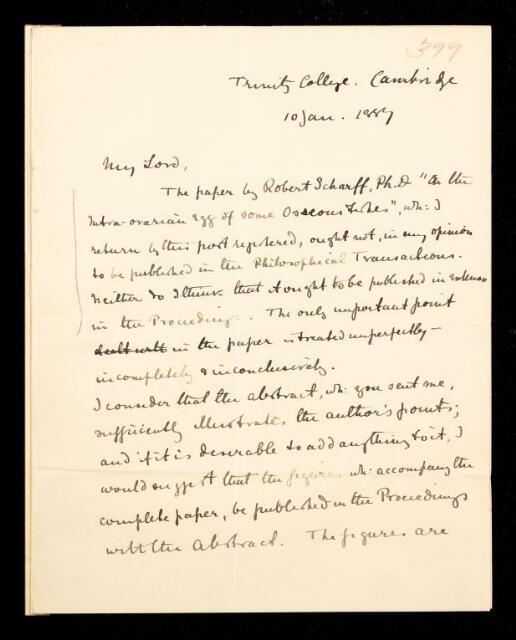 399
Trinity College. Cambridge
10 Jan. 1887
My Lord,
The paper by Robert Scharff, Ph.D "On the
Intra-ovarian egg of some Osseous Fishes", wh: I
return by this post registered, ought not, in my opinion
to be published in the Philosophical Transactions.
Neither do I think that it ought to be published in extenso
in the Proceedings. The only important point
dealt with in the paper is treated imperfectly—
incompletely & inconclusively.
I consider that the abstract, wh: you sent me,
sufficiently illustrates the author's points;
and if it is desirable to add anything to it, I
would suggest that the figures wh: accompany the
complete paper, be published in the Proceedings
with the Abstract. The figures are